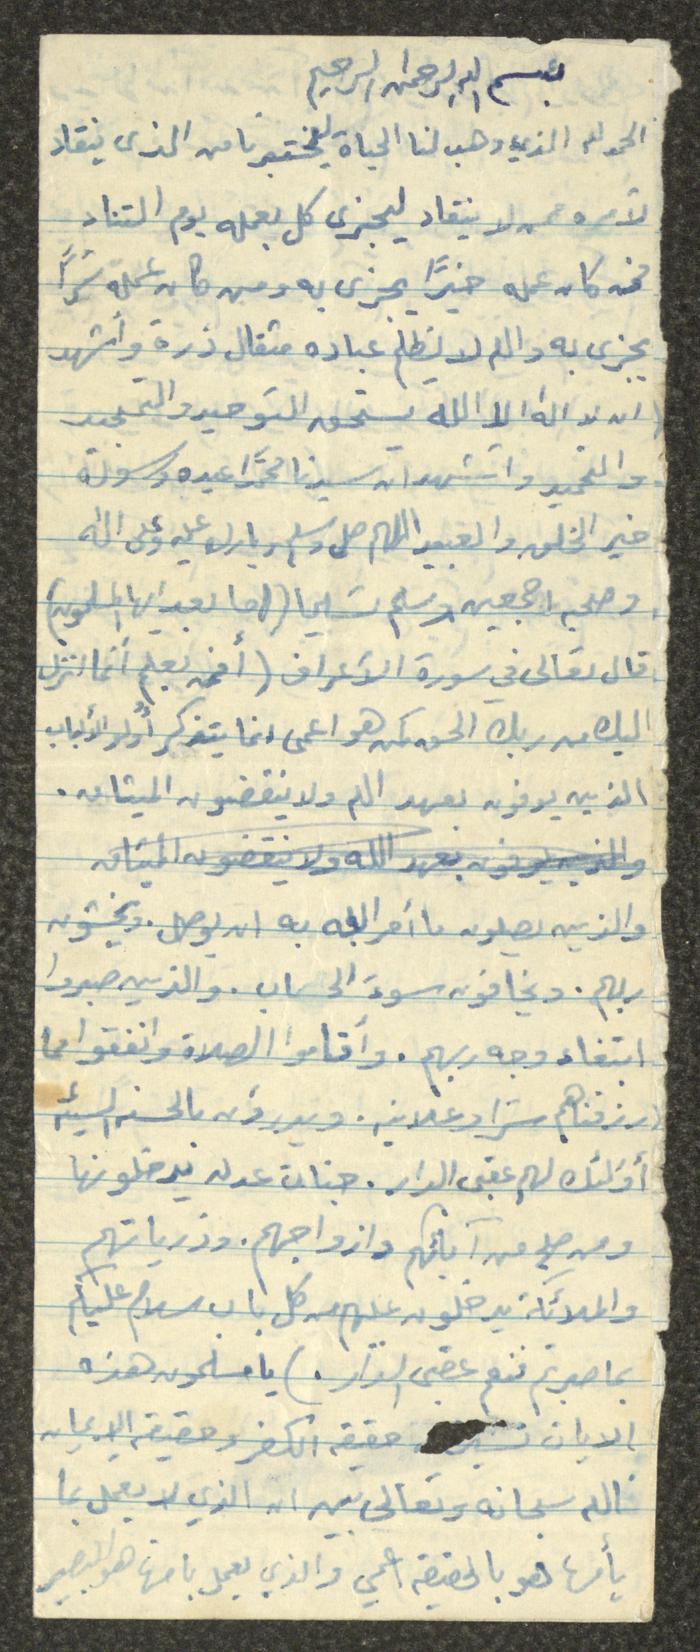 بسم الله الرحمن الرحيم
الحمد لله الذي وهب لنا الحياة ليختبرنا من الذى ينقاد
لأمره ممن لا ينقاد ليجزى كل بعمله يوم التناد
فمن كان عمله خيرًا يجزى به ومن كان عمله شرًا
يجزى به والله لا يظلم عباده مثقال ذرة وأشهد
ان لا اله الا الله يستحق التوحيد والتمجيد
والتحميد واشهد ان سيدنا محمدًا عبده ورسوله
خير الخلق والعبيد اللهم صلى وسلم وبارك عليه وعلى اله
وصحبه اجمعين وسلم تسليما (اما بعد ايها المسلمون)
قال تعالى في سورة الاعراف (أفمن يعلم أنما انزل
اليك من ربك الحق كمن هو اعمى انما يتذكر أولو الألباب
الذين يوفون بعهد الله ولا ينقضون الميثاق .
والذين يوفون بعهد الله ولا ينقضون الميثاق
والذين يصلون ما أمر الله به ان يوصل . ويخشون
ربهم . ويخافون سوء الحساب . والذين صبروا
ابتغاء وجه ربهم . وأقاموا الصلاة وانفقوا مما
رزقناهم سرًا وعلانيه . ويدرؤن بالحسنه السيئه
أولئك لهم عقبى الدار . جنات عدن يدخلونها
ومن صلح من آبائهم وازواجهم . وذرياتهم
والملائكة يدخلون عليهم من كل باب سلام عليكم
بما صبرتم فنعم عقبى الدار .) يا مسلمون هذه
الايات حقيقه الكفر وحقيقه الايمان
فالله سبحانه وتعالى بين ان الذي لا يعمل بما
يأمرنا هو بالحقيقه اعمى والذي يعمل بامرنا هو البصير